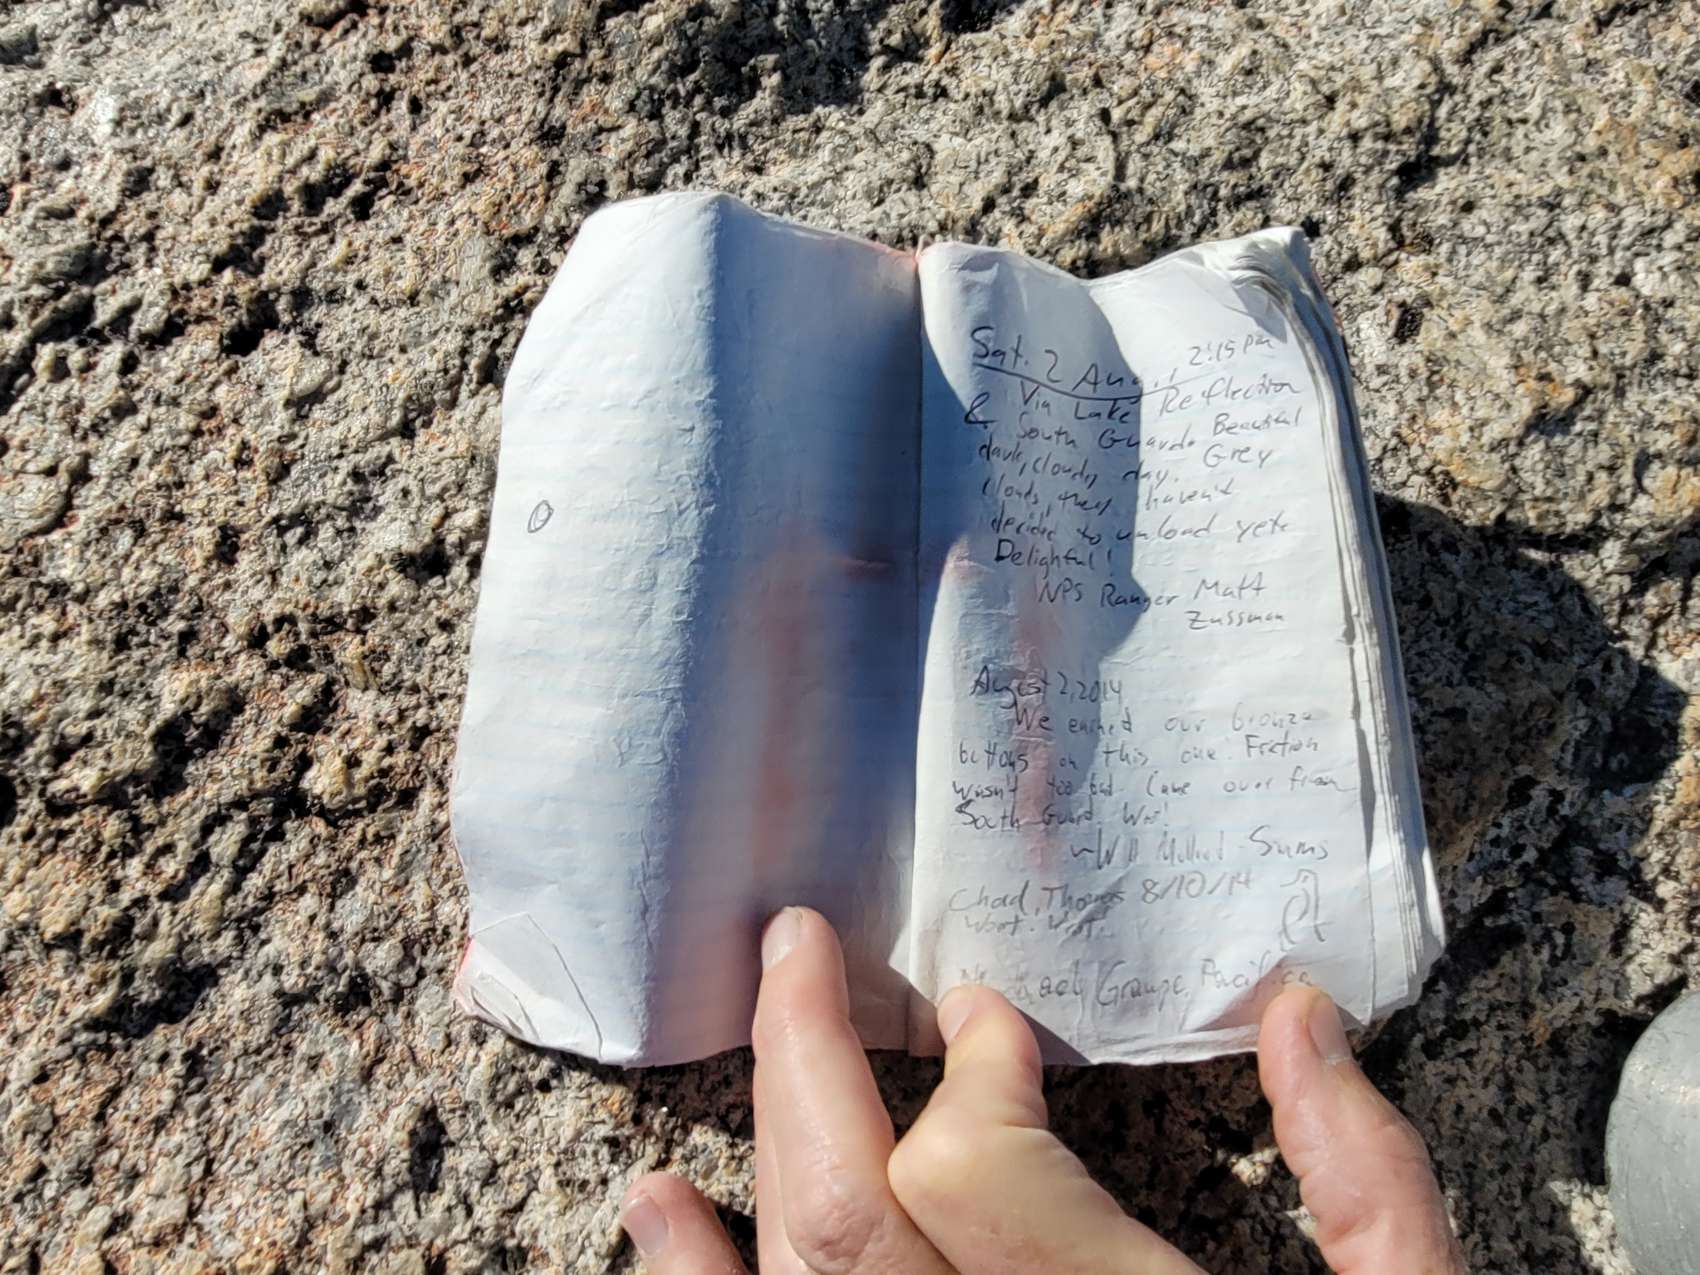 Sat. 2 Aug., 2:15 pm
Via Lake Reflection
& South Guard. Beautiful
dark, cloudy day. Grey
clouds, they haven't
decided to unload yet.
Delightful!
NPS Ranger Matt
Zussman
August 2, 2014
We earned our bronze
buttons on this one. Friction
wasn't too bad. Came over from
South Guard. Woo!
~Will Sums
Chad, Thomas 8/10/14
Woot. Woot!
Pacifica